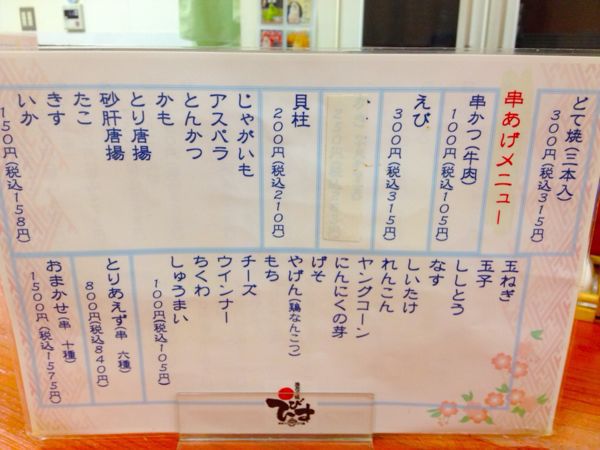 どて焼（三本入）
300円（税込315円）
串あげメニュー
串かつ（牛肉）
100円（税込105円）
えび
300円（税込315円）
貝柱
200円（税込210円）
じゃがいも
アスパラ
とんかつ
かも
とり唐揚
砂肝唐揚
たこ
きす
いか
150円（税込158円）
玉ねぎ
玉子
ししとう
なす
しいたけ
れんこん
ヤングコーン
にんにくの芽
げそ
やげん（鶏なんこつ）
もち
チーズ
ウインナー
ちくわ
しゅうまい
100円（税込105円）
とりあえず（串 六種）
800円（税込840円）
おまかせ（串 十種）
1500円（税込1575円）